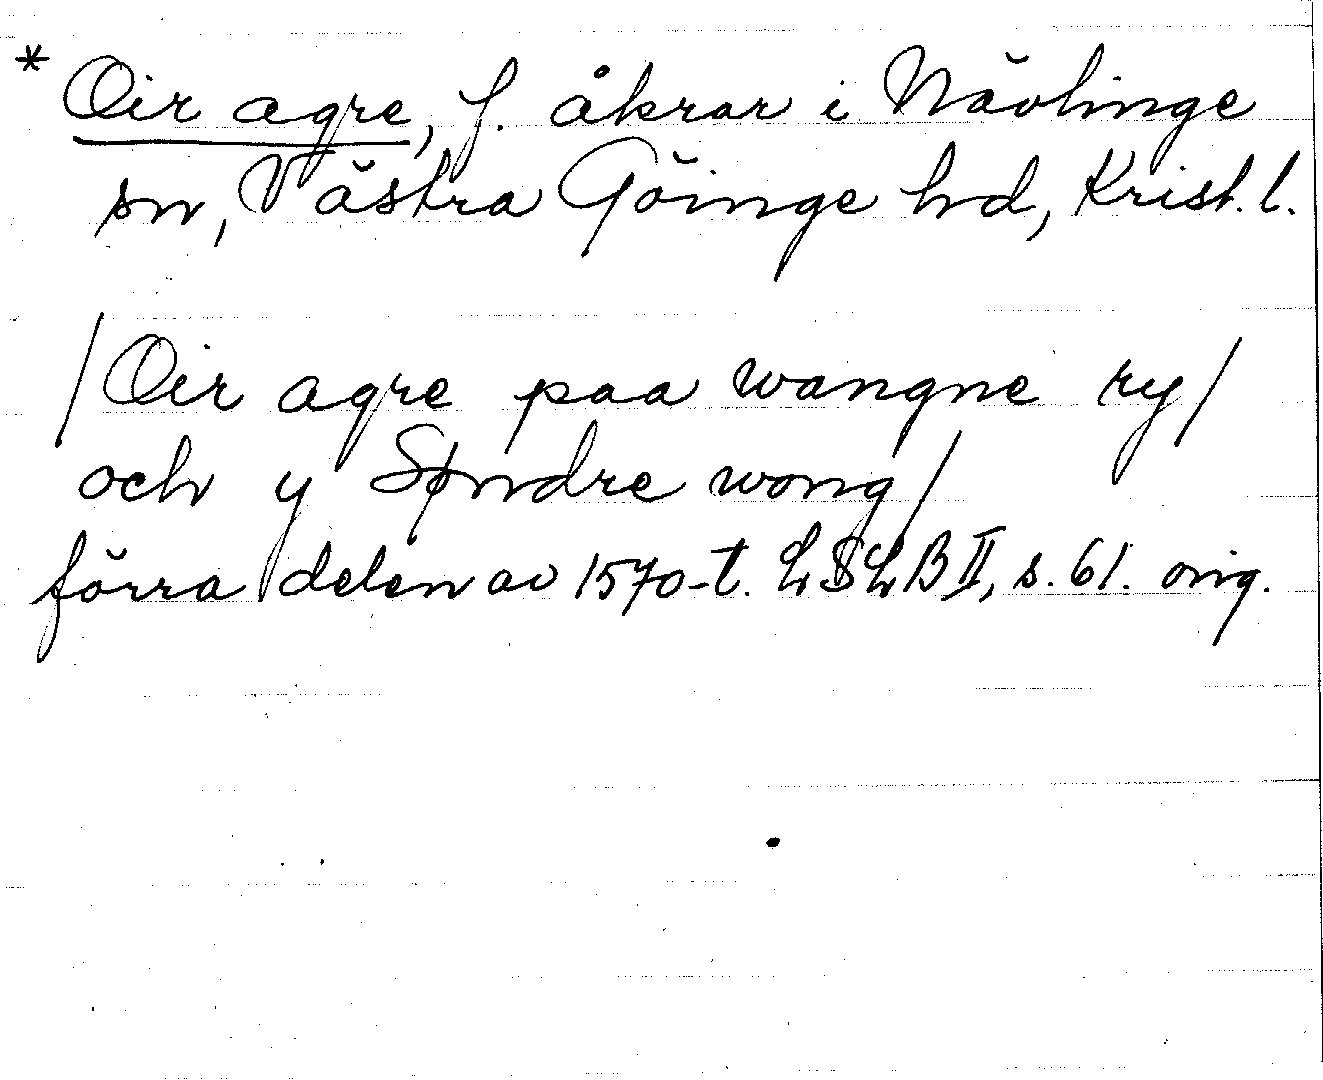 * Oir agre, f. åkrar i Nävlinge
sn, Västra Göinge hd, Krist. l.
/Oir agre paa wangne ry/
och y Søndre wong/
förra delen av 1570-t. LSLB II, s. 61. orig.